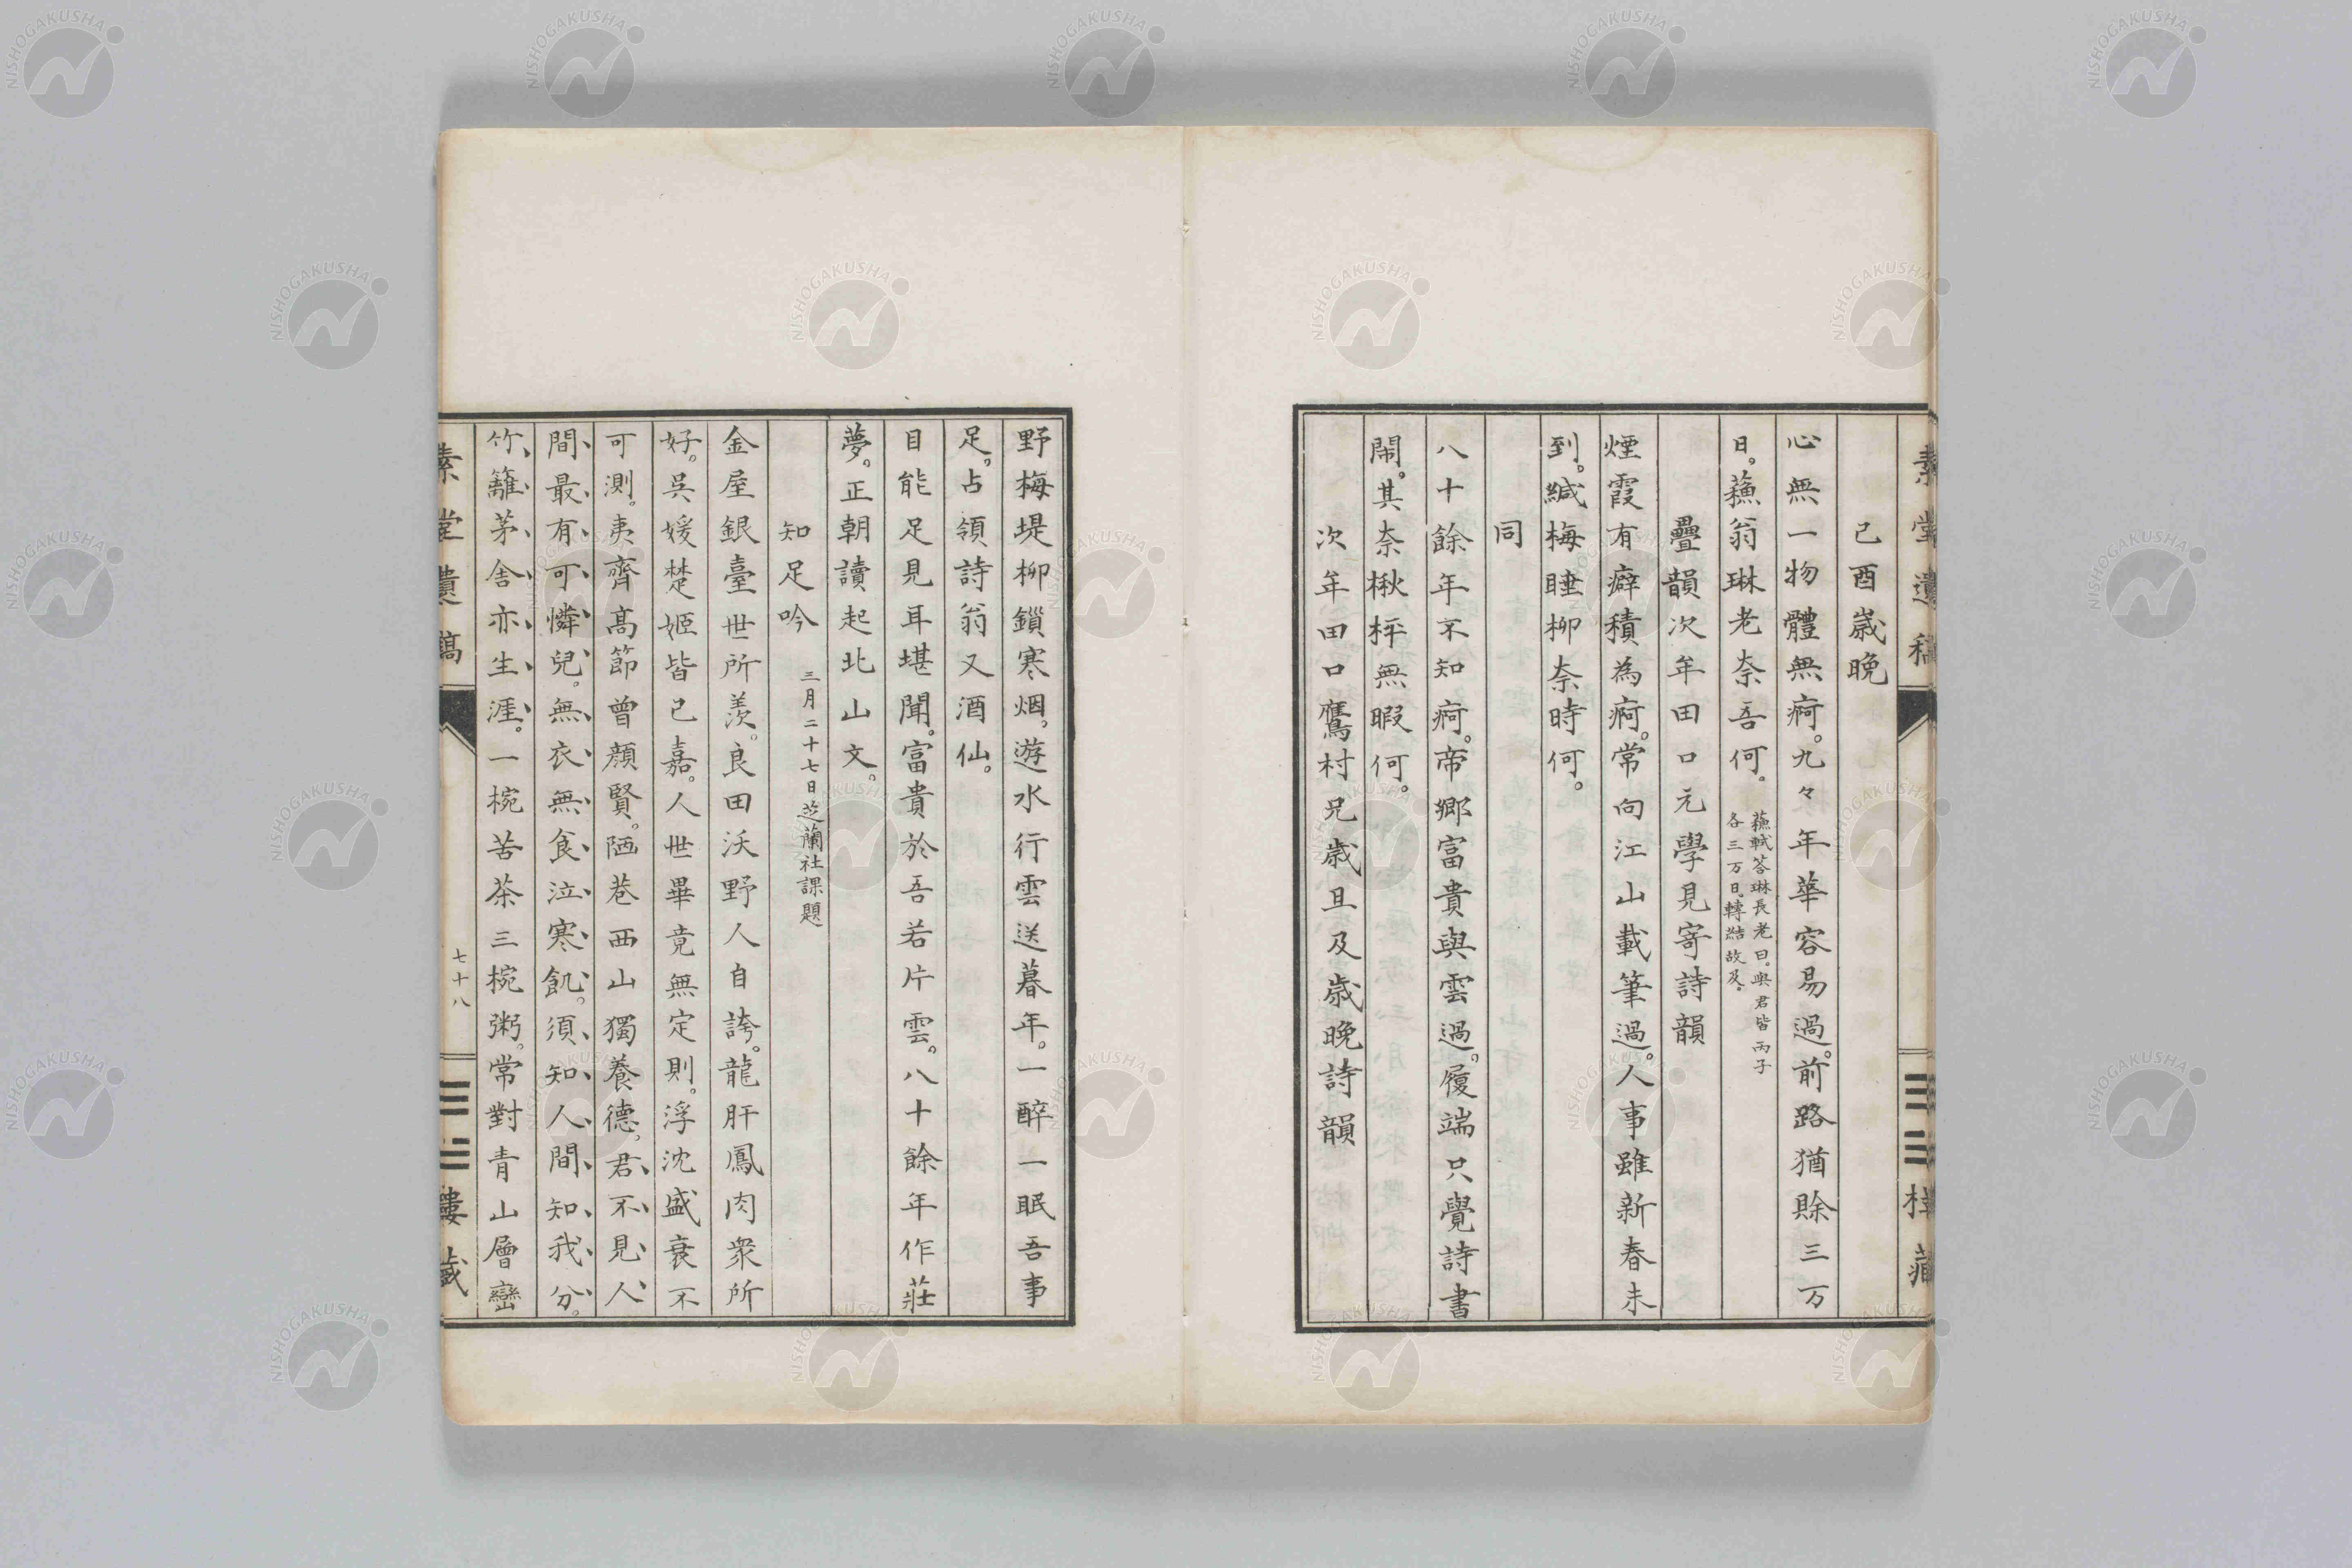 己酉歳晩
心無一物體無痾。九々年華容易過。前路猶賒三万
日。蘓翁琳老奈吾何。蘓軾答琳長老曰。與君皆丙子
各三万日。轉結故及。
疊韻次年田口元學見寄詩韻
煙霞有癖積為痾。常向江山載筆過。人事雖新春未
到。緘梅睡柳奈時何。
同
八十餘年不知痾。帝郷富貴與雲過。履端只覺詩書
閙。其奈楸枰無暇何。
次年田口鷹村兄歳旦及歳晩詩韻
野梅堤柳鎖寒烟。遊水行雲送暮年。一醉一眠吾事
足。占領詩翁又酒仙。
目能足見耳堪聞。富貴於吾若片雲。八十餘年作莊
夢。正朝讀起北山文。
知足吟 三月二十七日芝蘭社課題
金屋銀臺世所羨。良田沃野人自誇。龍肝鳳肉衆所
好。吳媛楚姬皆已嘉。人世畢竟無定則。浮沈盛衰不
可測。夷齊髙節曾顔賢。陋巷西山獨養德。君不見人
間最有可憐兒。無衣無食泣寒飢。須知人間知我分。
竹籬茅舍亦生涯。一椀苦茶三椀粥。常對青山層巒
素堂遺稿
七十八
三二樓藏
NISHOGAKUSHA